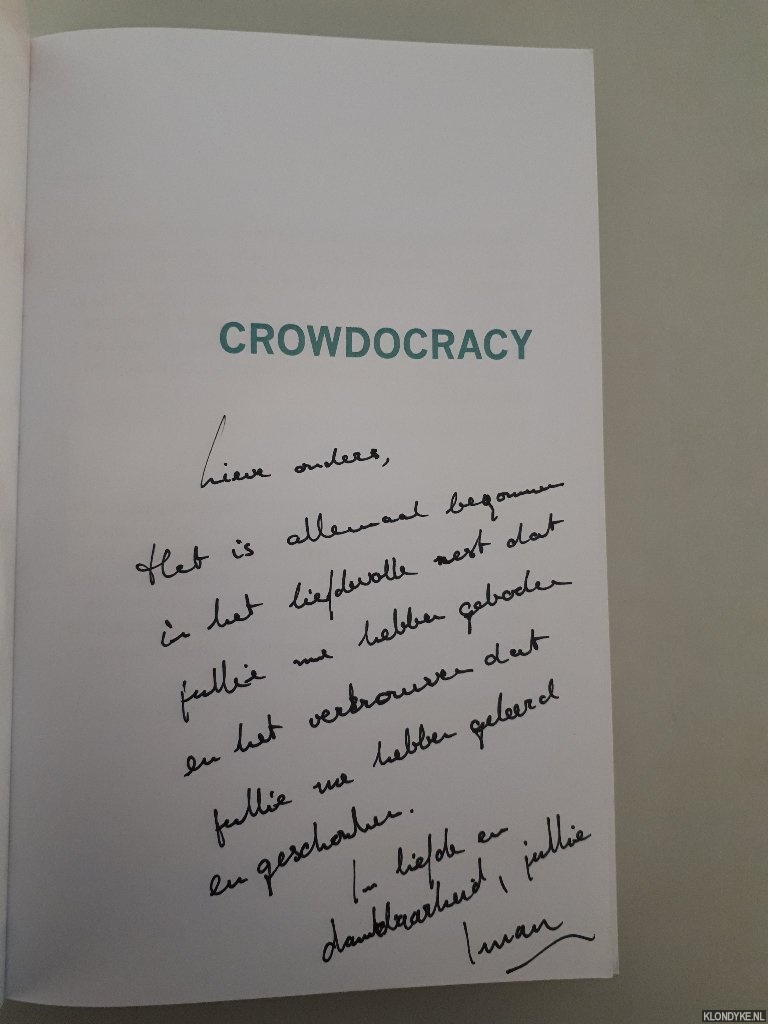 CROWDOCRACY
Lieve ouders,
Het is allemaal begonnen
in het liefdevolle nest dat
jullie me hebben geboden
en het vertrouwen dat
jullie me hebben geleerd
en geschonken.
In liefde en
dankbaarheid, jullie
Iman
KLONDYKE.NL